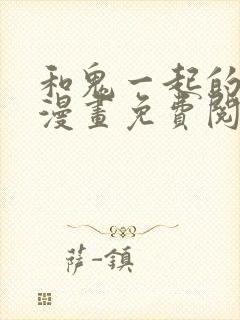 和鬼一起的
漫畫免費閱
萨-鎮